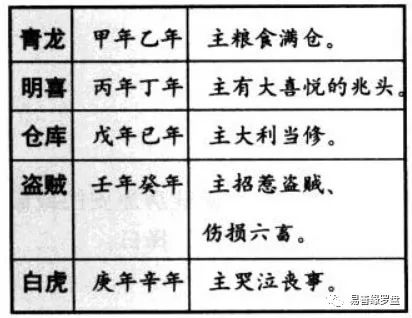 青龙 甲年乙年 主粮食满仓。
明喜 丙年丁年 主有大喜悦的兆头。
仓库 戊年已年 主大利当修。
盗贼 壬年癸年 主招惹盗贼、
伤损六畜。
白虎 庚年辛年 主哭泣丧事。
易善缘罗盘